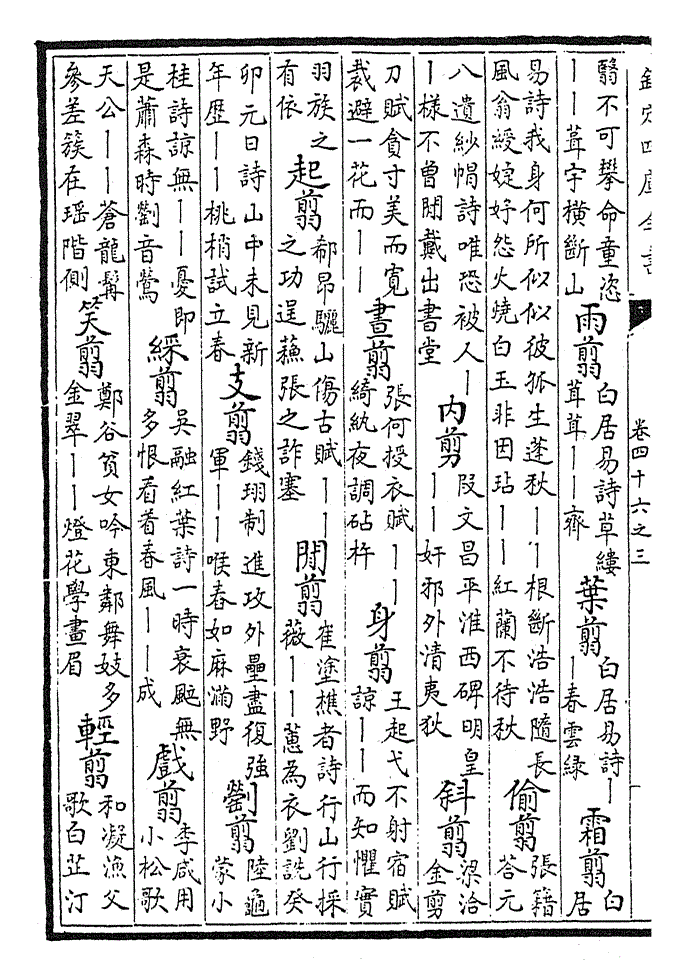 欽定四庫全書
卷四十六之三
翳不可攀命童恣
丨丨葺宇橫斷山
雨翦
白居易詩草縷
茸茸丨丨齊
葉翦
白居易詩丨
丨春雲綠
霜翦
白
居
易詩我身何所似似彼孤生蓬秋丨丨根斷浩浩隨長
風翁綬婕妤怨火燒白玉非因玷丨丨紅蘭不待秋
偷翦
張籍
荅元
八遺紗帽詩唯恐被人丨
丨樣不曾閒戴出書堂
內剪
段文昌平淮西碑明皇
丨丨奸邪外清夷狄
斜翦
梁洽
金剪
刀賦貪寸美而寛
裁避一花而丨丨
晝翦
張何授衣賦丨丨
綺紈夜調砧杵
身翦
王起弋不射宿賦
諒丨丨而知懼實
羽族之
有依
起翦
郗昂驪山傷古賦丨丨
之功逞蘓張之詐塞
閒翦
崔塗樵者詩行山行採
薇丨丨蕙為衣劉詵癸
卯元日詩山中未見新
年歴丨丨桃梢試立春
支翦
錢珝制進攻外壘盡復強
軍丨丨喉舂如麻滿野
翦
陸龜
蒙小
桂詩諒無丨丨憂即
是蕭森時音鶯
綵翦
吳融紅葉詩一時衰颭無
多恨看着春風丨丨成
戲翦
李咸用
小松歌
天公丨丨蒼龍髯
參差簇在瑶階側
笑翦
鄭谷貧女吟東鄰舞妓多
金翠丨丨燈花學畫眉
輕翦
和凝漁父
歌白芷汀